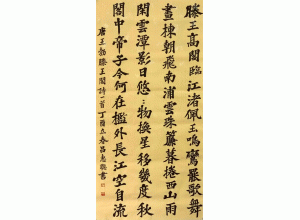 滕王高閣臨江渚佩玉鳴鸞罷歌舞
畫棟朝飛南浦雲珠簾暮捲西山雨
閑雲潭影日悠悠物換星移幾度秋
閣中帝子今何在檻外長江空自流
唐王勃滕王閣詩一首丁酉立春吕惠